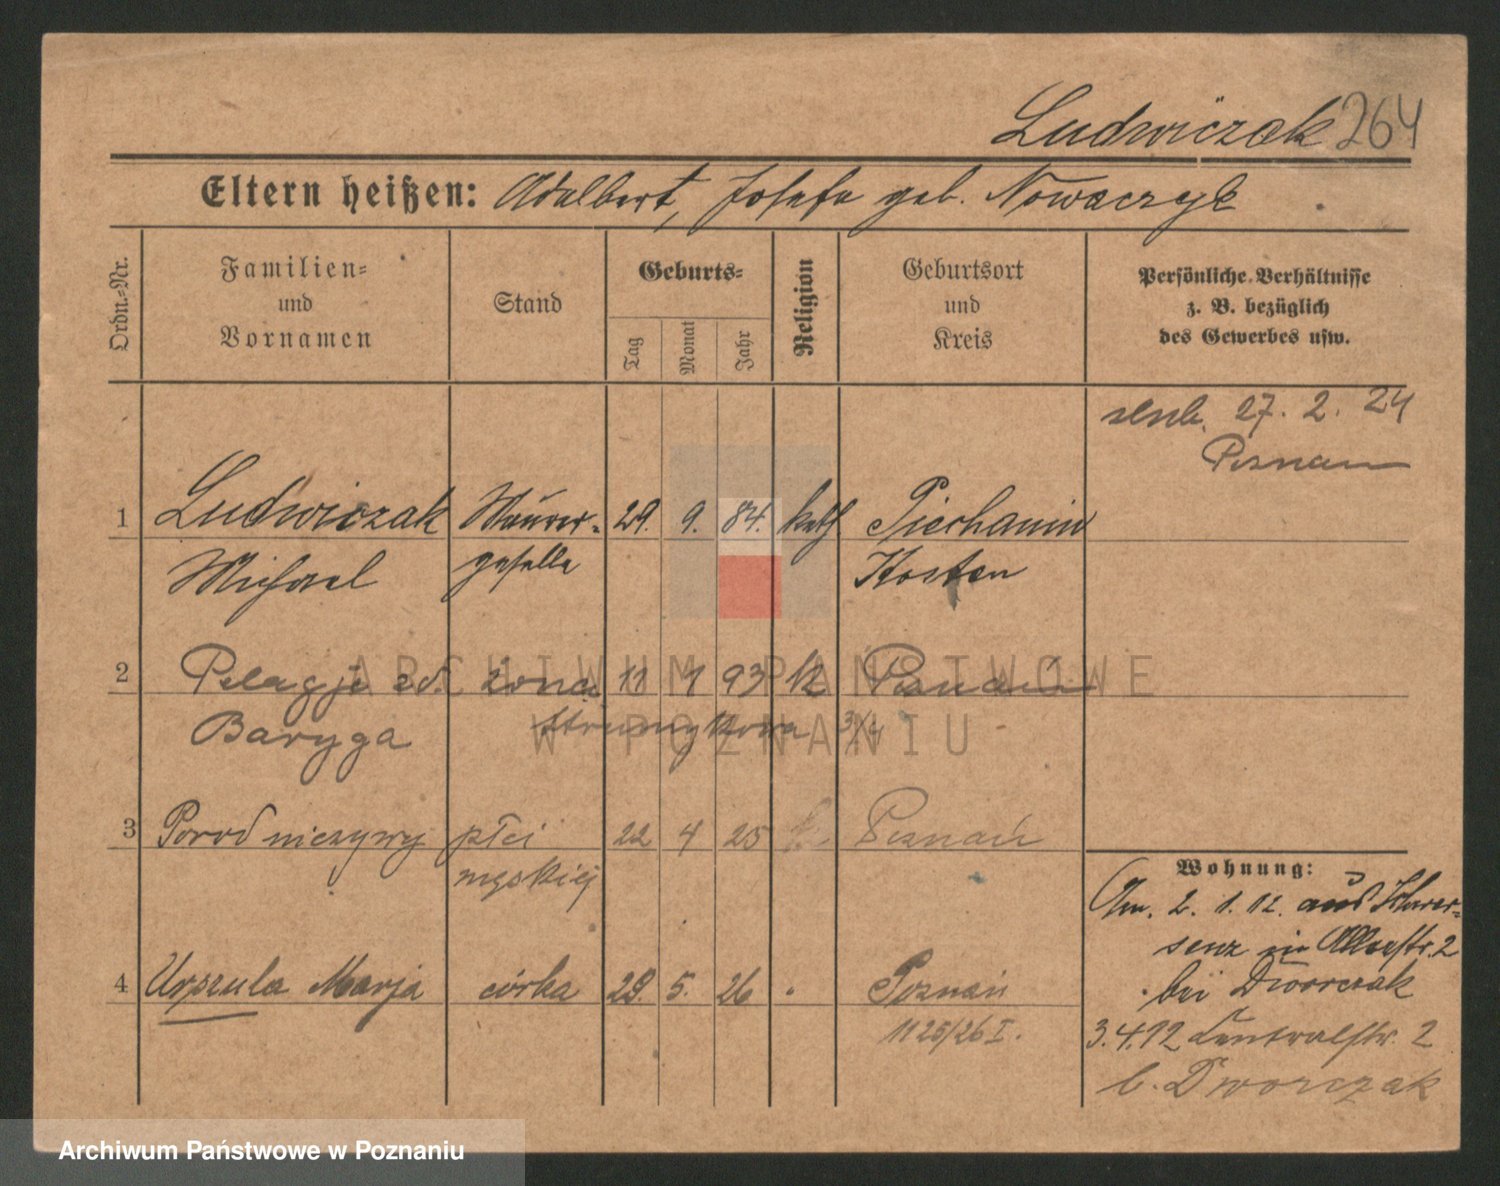 Ludwiczak 264
Eltern heißen: Adalbert, Josefa geb. Nowaczyk
Ordn.=Nr.
Familien=
und
Vornamen
Stand
Geburts=
Tag
Monat
Jahr
Religion
Geburtsort
und
Kreis
Persönliche Verhältnisse
z. B. bezüglich
des Gewerbes usw.
27. 2. 24
Poznan
1 Ludwiczak Maurer- 29. 9. 84. kath Piechanin
Michael geselle Kosten
2 Pelagja zd. żona 11 1 93 k Poznań
Baryga
3 Poród nieżywy płci 22 4 25 Poznań
męskiej
4 Urszula Marja córka 29. 5. 26 Poznań
1125/26 I.
Wohnung:
Am. 2. 1. 12. aus Schwer-
senz in Alleestr. 2
bei Dworczak
3.4.12 Centralstr. 2
b. Dworczak
ARCHIWUM PAŃSTWOWE
W POZNANIU
Archiwum Państwowe w Poznaniu